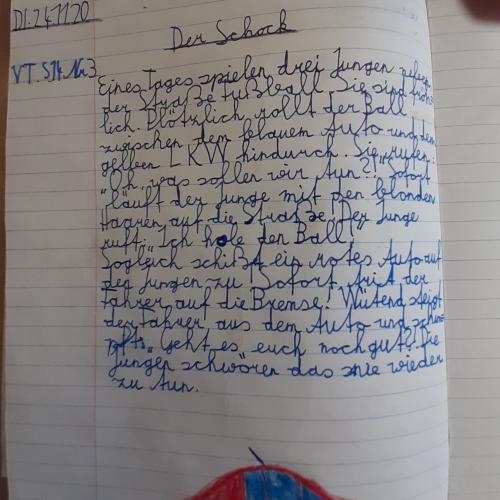 DI. 24.11.20
Der Schock
VT. S14. Nr. 3
Eines Tages spielen drei Jungen neben
der Straße Fußball. Sie sind fröh-
lich. Plötzlich rollt der Ball
zwischen dem blauem Auto und dem
gelben LKW hindurch. Sie rufen:
„Oh, was sollen wir tun?!" Sofort
läuft der Junge mit den blonden
Haaren auf die Straße. Der Junge
ruft: „Ich hole den Ball!
Sogleich schißt ein rotes Auto auf
den Jungen zu! Sofort trit der
Fahrer auf die Bremse! Wütend steigt
der Fahrer aus dem Auto und schim-
pft: „Geht es euch noch gut?" Die
Jungen schwören das nie wieder
zu tun.